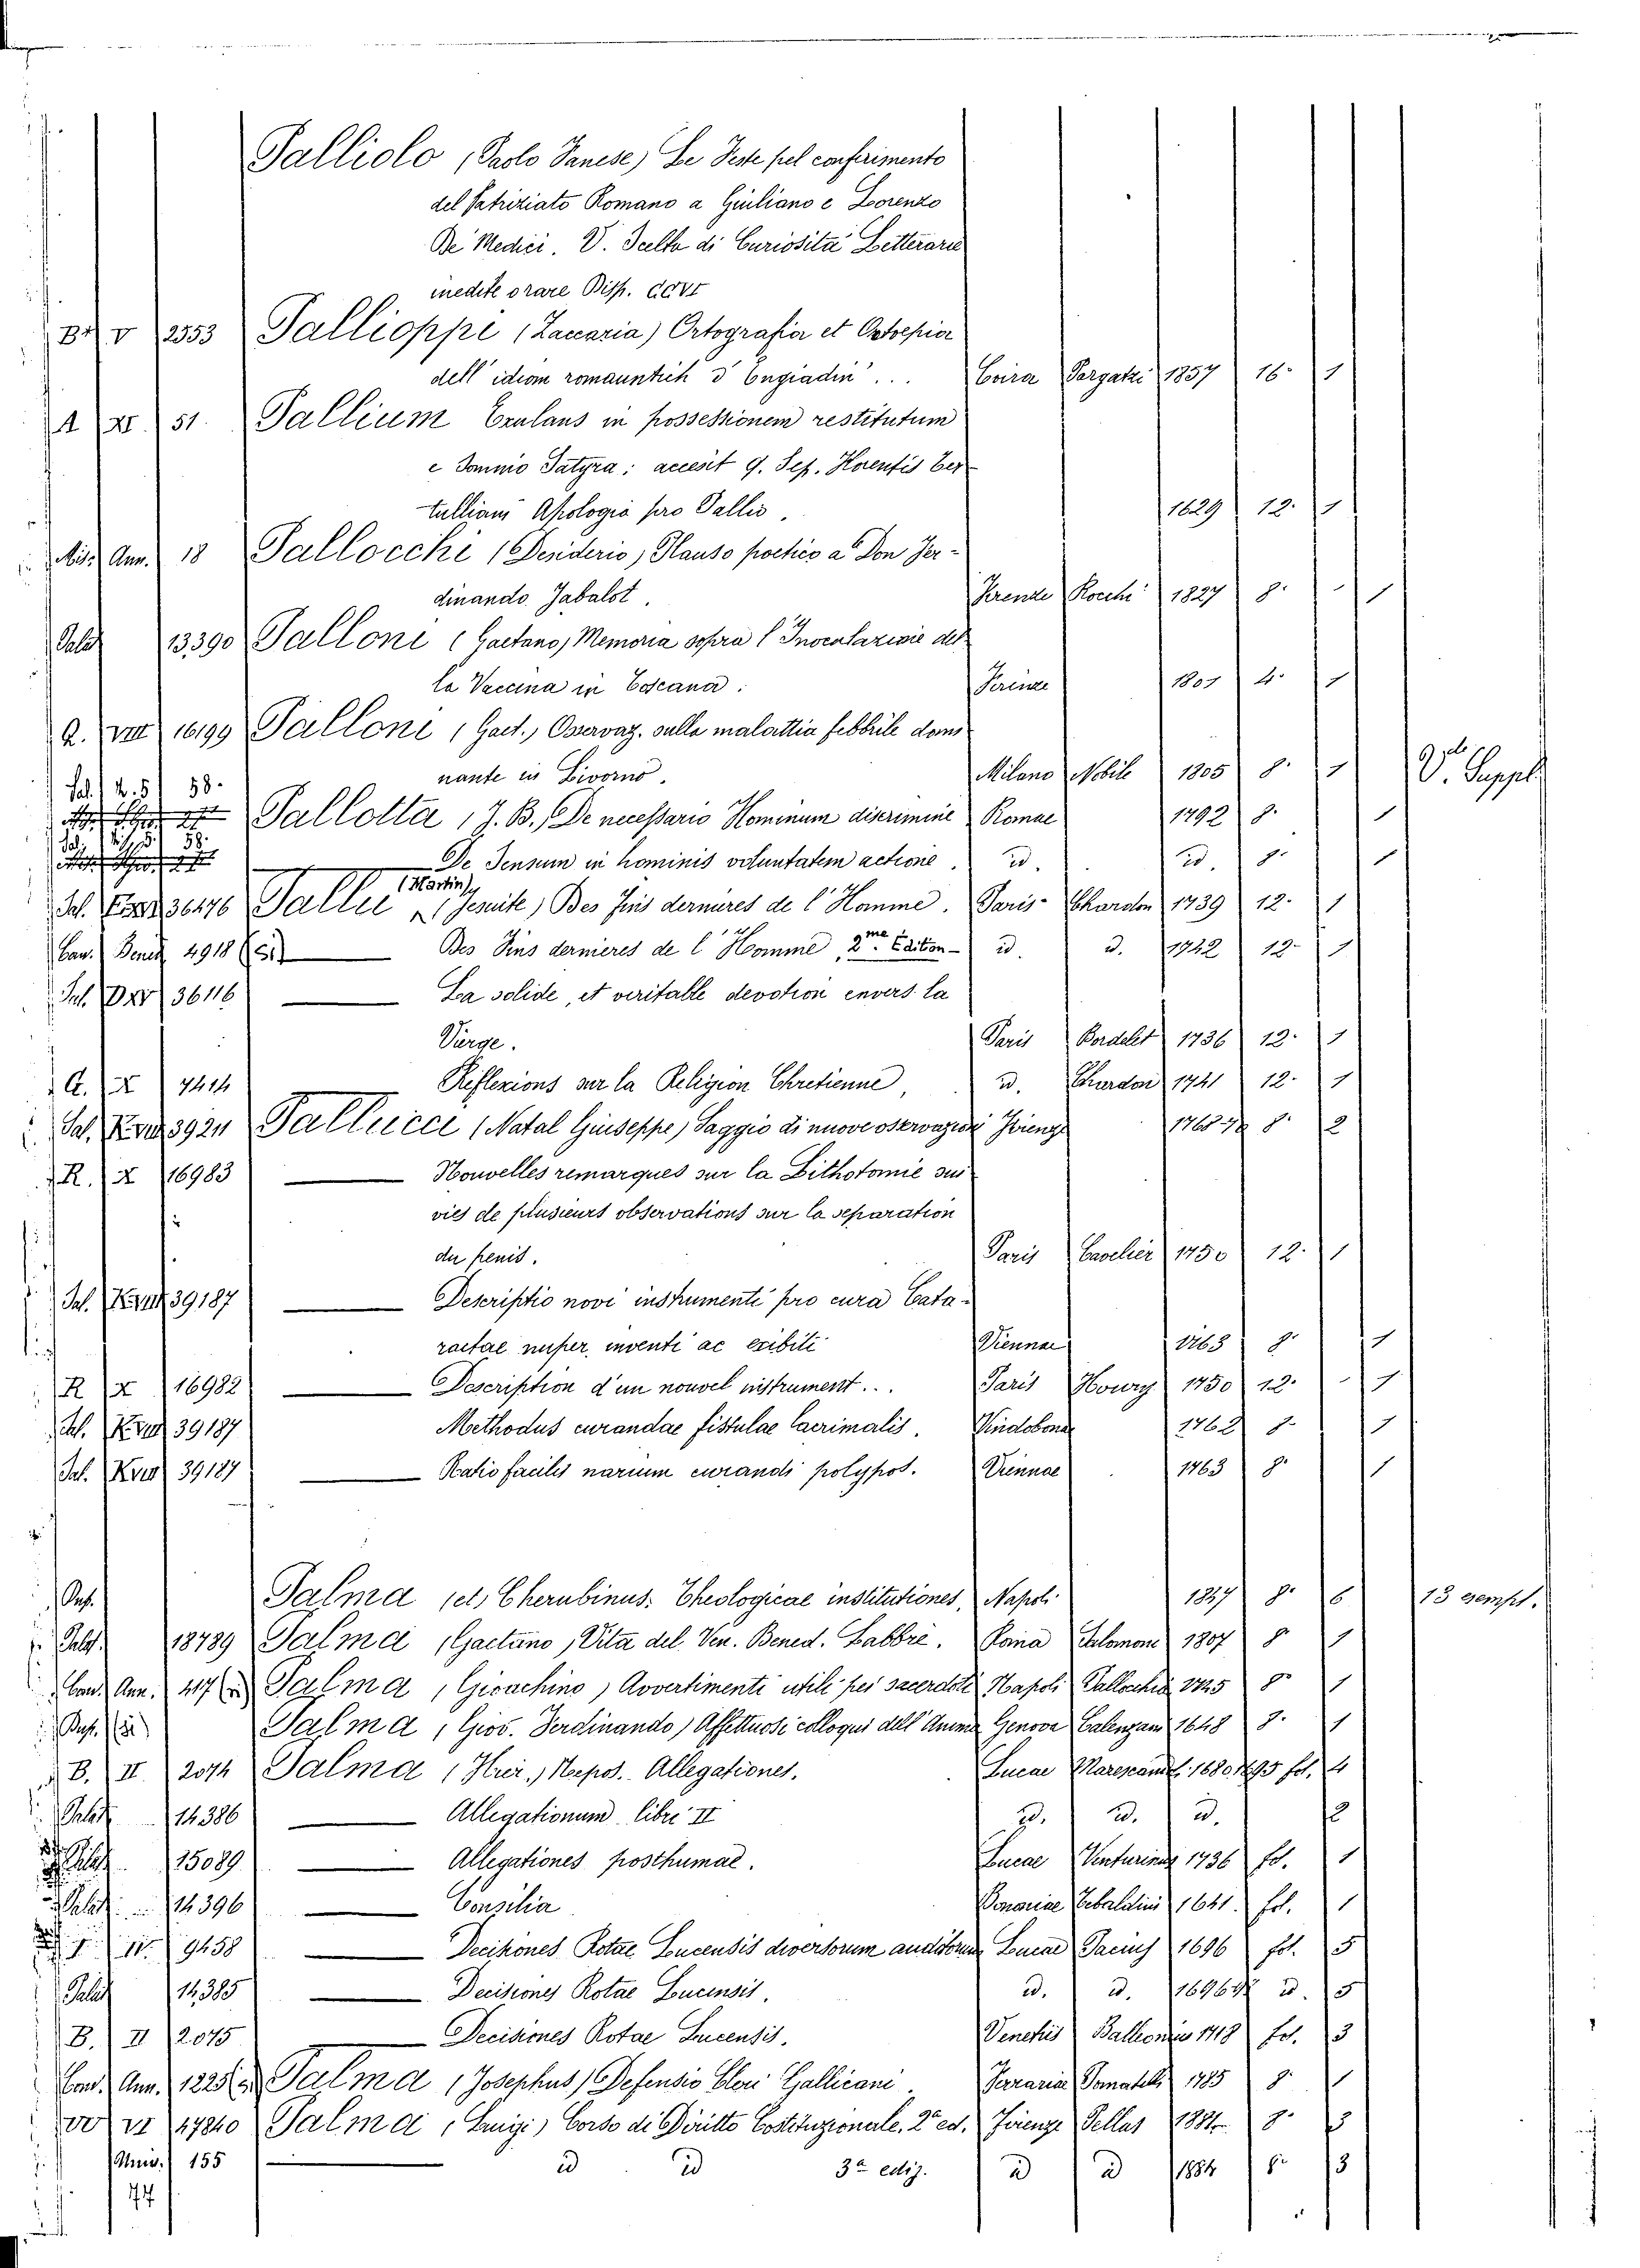 Palliolo (Paolo Fanese) Le Feste pel conferimento
del Patriziato Romano a Giuliano e Lorenzo
De Medici. V. Scelta di Curiosità Letterarie
inedite o rare Disp. CCVI
V 2353 Pallioppi (Zaccaria) Ortografia et Ortoepia
dell' idiom romauntsch d' Engiadin' ... Coira Pargatzi 1857 16. 1
A XI. 51. Pallium Exulans in possessionem restitutum
e Somnio Satyra: accesit Q. Sep. Florentis Ter-
tulliani Apologia pro Pallio. 1629 12. 1
Mis. Ann. 18 Pallocchi (Desiderio) Plauso poetico a Don Fer-
dinando Jabalot. Firenze Rocchi 1827 8. 1
Palat. 13390 Palloni (Gaetano) Memoria sopra l' Inoculazione del-
la Vaccina in Toscana. Firenze 1801 4. 1
Q. VIII 16199 Palloni (Gaet.) Osservaz. sulla malattia febbrile domi-
nante in Livorno. Milano Nobile 1805 8. 1 V. Suppl.
Sal. 4. 5 58.
Pallotta (J. B.) De necessario Hominum discrimine Romae 1792 8. 1
58.
De Sensum in hominis voluntatem actione. id. id. 8. 1
Sal. 36476 Pallu (Martin, Jesuite) Des fins dernieres de l' Homme. Paris Chardon 1739 12. 1
Can. Bened. 4918 (51) Des Fins dernieres de l' Homme, 2me. Edition id. id. 1742 12. 1
Sal. 36116 La solide, et veritable devotion envers la
Vierge. Paris Bordelet 1736 12. 1
A. X 7414 Reflexions sur la Religion Chretienne, id. Chardon 1741 12. 1
Sal. 3924 Pallucci (Natal Giuseppe) Saggio di nuove osservazioni Firenze 1768 8. 2
R. X 16983 Nouvelles remarques sur la Lithotomie sui-
vies de plusieurs observations sur la separation
du penis. Paris Cavelier 1750 12. 1
Sal. XVIII 39187 Descriptio novi instrumenti pro cura Cata-
ractae nuper inventi ac exibiti Viennae 1763 8. 1
R X 16982 Description d'un nouvel instrument... Paris Houry 1750 12. 1
Sal. XVIII 39187 Methodus curandae fistulae lacrimalis. Vindobonae 1762 8. 1
Sal. XVIII 39187 Ratio facilis narium curandi polypos. Viennae 1763 8. 1
Palma (et) Cherubinus: Theologicae institutiones, Napoli 1847 8. 6 13 esempl.
Palat. 18789 Palma (Gaetano) Vita del Ven. Bened. Labbrè. Roma Salomoni 1807 8 1
Cand. Ann. 417 Palma (Gioachino) Avvertimenti utili pei sacerdoti Napoli Pallechia 1745 8. 1
Palma (Giov. Ferdinando) Affettuosi colloqui dell' Anima Genova Calenzani 1648 8. 1
B. II 2074 Palma (Hier.) Nepos. Allegationes. Lucae Marescandol. 1680.1695 fol. 4
Palat. 14386 Allegationum libri II id. id. id. 2
Palat. 15089 Allegationes posthumae. Lucae Venturinus 1736 fol. 1
Palat. 14396 Consilia Bononiae Tebaldini 1641. fol. 1
9458 Decisiones Rotae Lucensis diversorum auditorum Lucae Pacius 1696 fol. 5
Palat. 14385 Decisiones Rotae Lucensis. id. id. 1696 id. 5
B. II 2075 Decisiones Rotae Lucensis. Venetiis Balleonius 1718 fol. 3
Cand. Ann. 1225 Palma (Josephus) Defensio Cleri Gallicani. Ferrariae Pomatelli 1785 8. 1
VI 17840 Palma (Luigi) Corso di Diritto Costituzionale. 2a ed. Firenze Pellas 1881 8. 3
Univ. 155 id id 3a ediz. id id 1884 8. 3
77